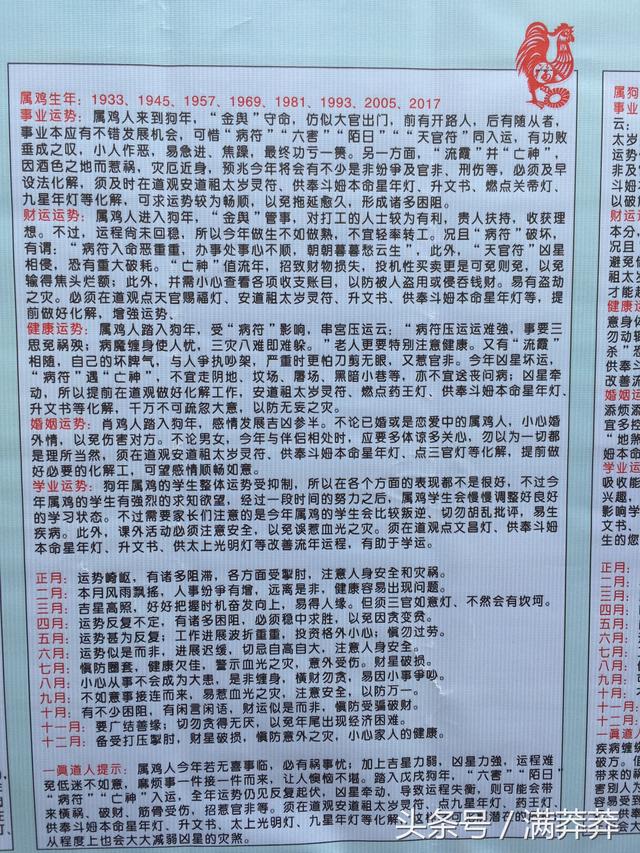 属鸡生年：1933、1945、1957、1969、1981、1993、2005、2017
事业运势：属鸡人来到狗年，“金舆”守命，仿似大官出门，前有开路人，后有随从者，
事业本应有不错发展机会，可惜“病符”“六害”“陌日”“天官符”同入运，有功败
垂成之叹，小人作恶，易急进、焦躁，最终功亏一篑。另一方面，“流霞”并“亡神”，
因酒色之地而惹祸，灾厄近身，预兆今年将会有不少是非纷争及官非、刑伤等，必须及早
设法化解，须及时在道观安道祖太岁灵符、供奉斗姆本命星年灯、升文书、燃点关帝灯、
九星年灯等化解，可求运势较为畅顺，以免拖延愈久，形成诸多困阻。
财运运势：属鸡人进入狗年，“金舆”管事，对打工的人士较为有利，贵人扶持，收获理
想。不过，运程尚未回稳，所以今年做生不如做熟，不宜轻率转工。况且“病符”破坏，
有谓：“病符入命恶重重，办事处事心不顺，朝朝暮暮愁云生”，此外，“天官符”凶星
相侵，恐有重大破耗。“亡神”值流年，招致财物损失，投机性买卖更是可免则免，以免
输得焦头烂额；此外，并需小心查看各项收支账目，以防被人盗用或侵吞钱财。易有盗劫
之灾。必须在道观点天官赐福灯、安道祖太岁灵符、升文书、供奉斗姆本命星年灯等，提
前做好化解，增强运势。
健康运势：属鸡人踏入狗年，受“病符”影响，串宫压运云；“病符压运运难强，事要三
思免祸殃；病魔缠身使人忧，三灾八难即难躲。”老人更要特别注意健康。又有“流霞”
相随，自己的坏脾气，与人争执吵架，严重时更怕刀剪无眼，又惹官非。今年凶星坏运，
“病符”遇“亡神”，不宜走阴地、坟场、屠场、黑暗小巷等，亦不宜送丧问病；凶星牵
动，所以提前在道观做好化解工作，安道祖太岁灵符、燃点药王灯、供奉斗姆本命星年灯、
升文书等化解，千万不可疏忽大意，以防无妄之灾。
婚姻运势：肖鸡人踏入本年，感情发展吉凶参半。不论已婚或是恋爱中的属鸡人，小心婚
外情，以免伤害对方。不论男女，今年与伴侣相处时，应要多体谅多关心，勿以为一切都
是理所当然，须在道观安道祖太岁灵符、供奉斗姆本命星年灯、点三官灯等化解，提前做
好必要的化解工，可望感情顺畅如意。
学业运势：狗年属鸡的学生整体运势受抑制，所以在各个方面的表现都不是很好，不过今
年属鸡的学生有强烈的求知欲望，经过一段时间的努力之后，属鸡学生会慢慢调整好良好
的学习状态。不过需要家长们注意的是今年属鸡的学生会比较叛逆、切勿胡乱批评，易生
疾病。此外，课外活动必须注意安全，以免误惹血光之灾。须在道观点文昌灯、供奉斗姆
本命星年灯、升文书、供太上光明灯等改善流年运程，有助于学运。
正月：运势崎岖，有诸多阻滞，各方面受掣肘，注意人身安全和灾祸。
二月：本月风雨飘摇，人事纷争有增，远离是非，健康容易出现问题。
三月：吉星高照，好好把握时机奋发向上，易得人缘。但须三官如意灯、不然会有坎坷。
四月：运势反复不定，有诸多困阻，必须稳中求胜，以免因贪变贫。
五月：运势甚为反复；工作进展波折重重，投资格外小心；慎勿过劳。
六月：运势似是而非，进展迟缓，切忌自高自大，注意人身安全。
七月：慎防圈套，健康欠佳，警示血光之灾，意外受伤。财星破损。
八月：小心从事不会成为大患，是非缠身，横财勿贪，易因小事争吵。
九月：不如意事接连而来，易惹血光之灾，注意安全，以防万一。
十月：有不少困阻，有闲言闲语，财运似是而非，慎防受骗破财。
十一月：要广结善缘；切勿贪得无厌，以免年尾出现经济困难。
十二月：备受打压掣肘，财星破损，慎防意外之灾，小心家人的健康。
一眞道人提示：属鸡人今年若无喜事临，必有祸事忧；加上吉星力弱，凶星力强，运程难
免低迷不如意，麻烦事一件接一件而来，让人懊恼不堪。踏入戊戌狗年，“六害”“陌日”
“病符”“亡神”入运，全年运势仍见反复起伏，凶星牵动，导致运程失衡，则可能会带
来横祸、破财，筋骨受伤，招惹官非等。须在道观安道祖太岁灵符、点九星年灯、药王灯、
供奉斗姆本命星年灯、升文书、太上光明灯、九星年灯等化解
从程度上也会大大减弱凶星的灾煞。
头条号／满莽莽